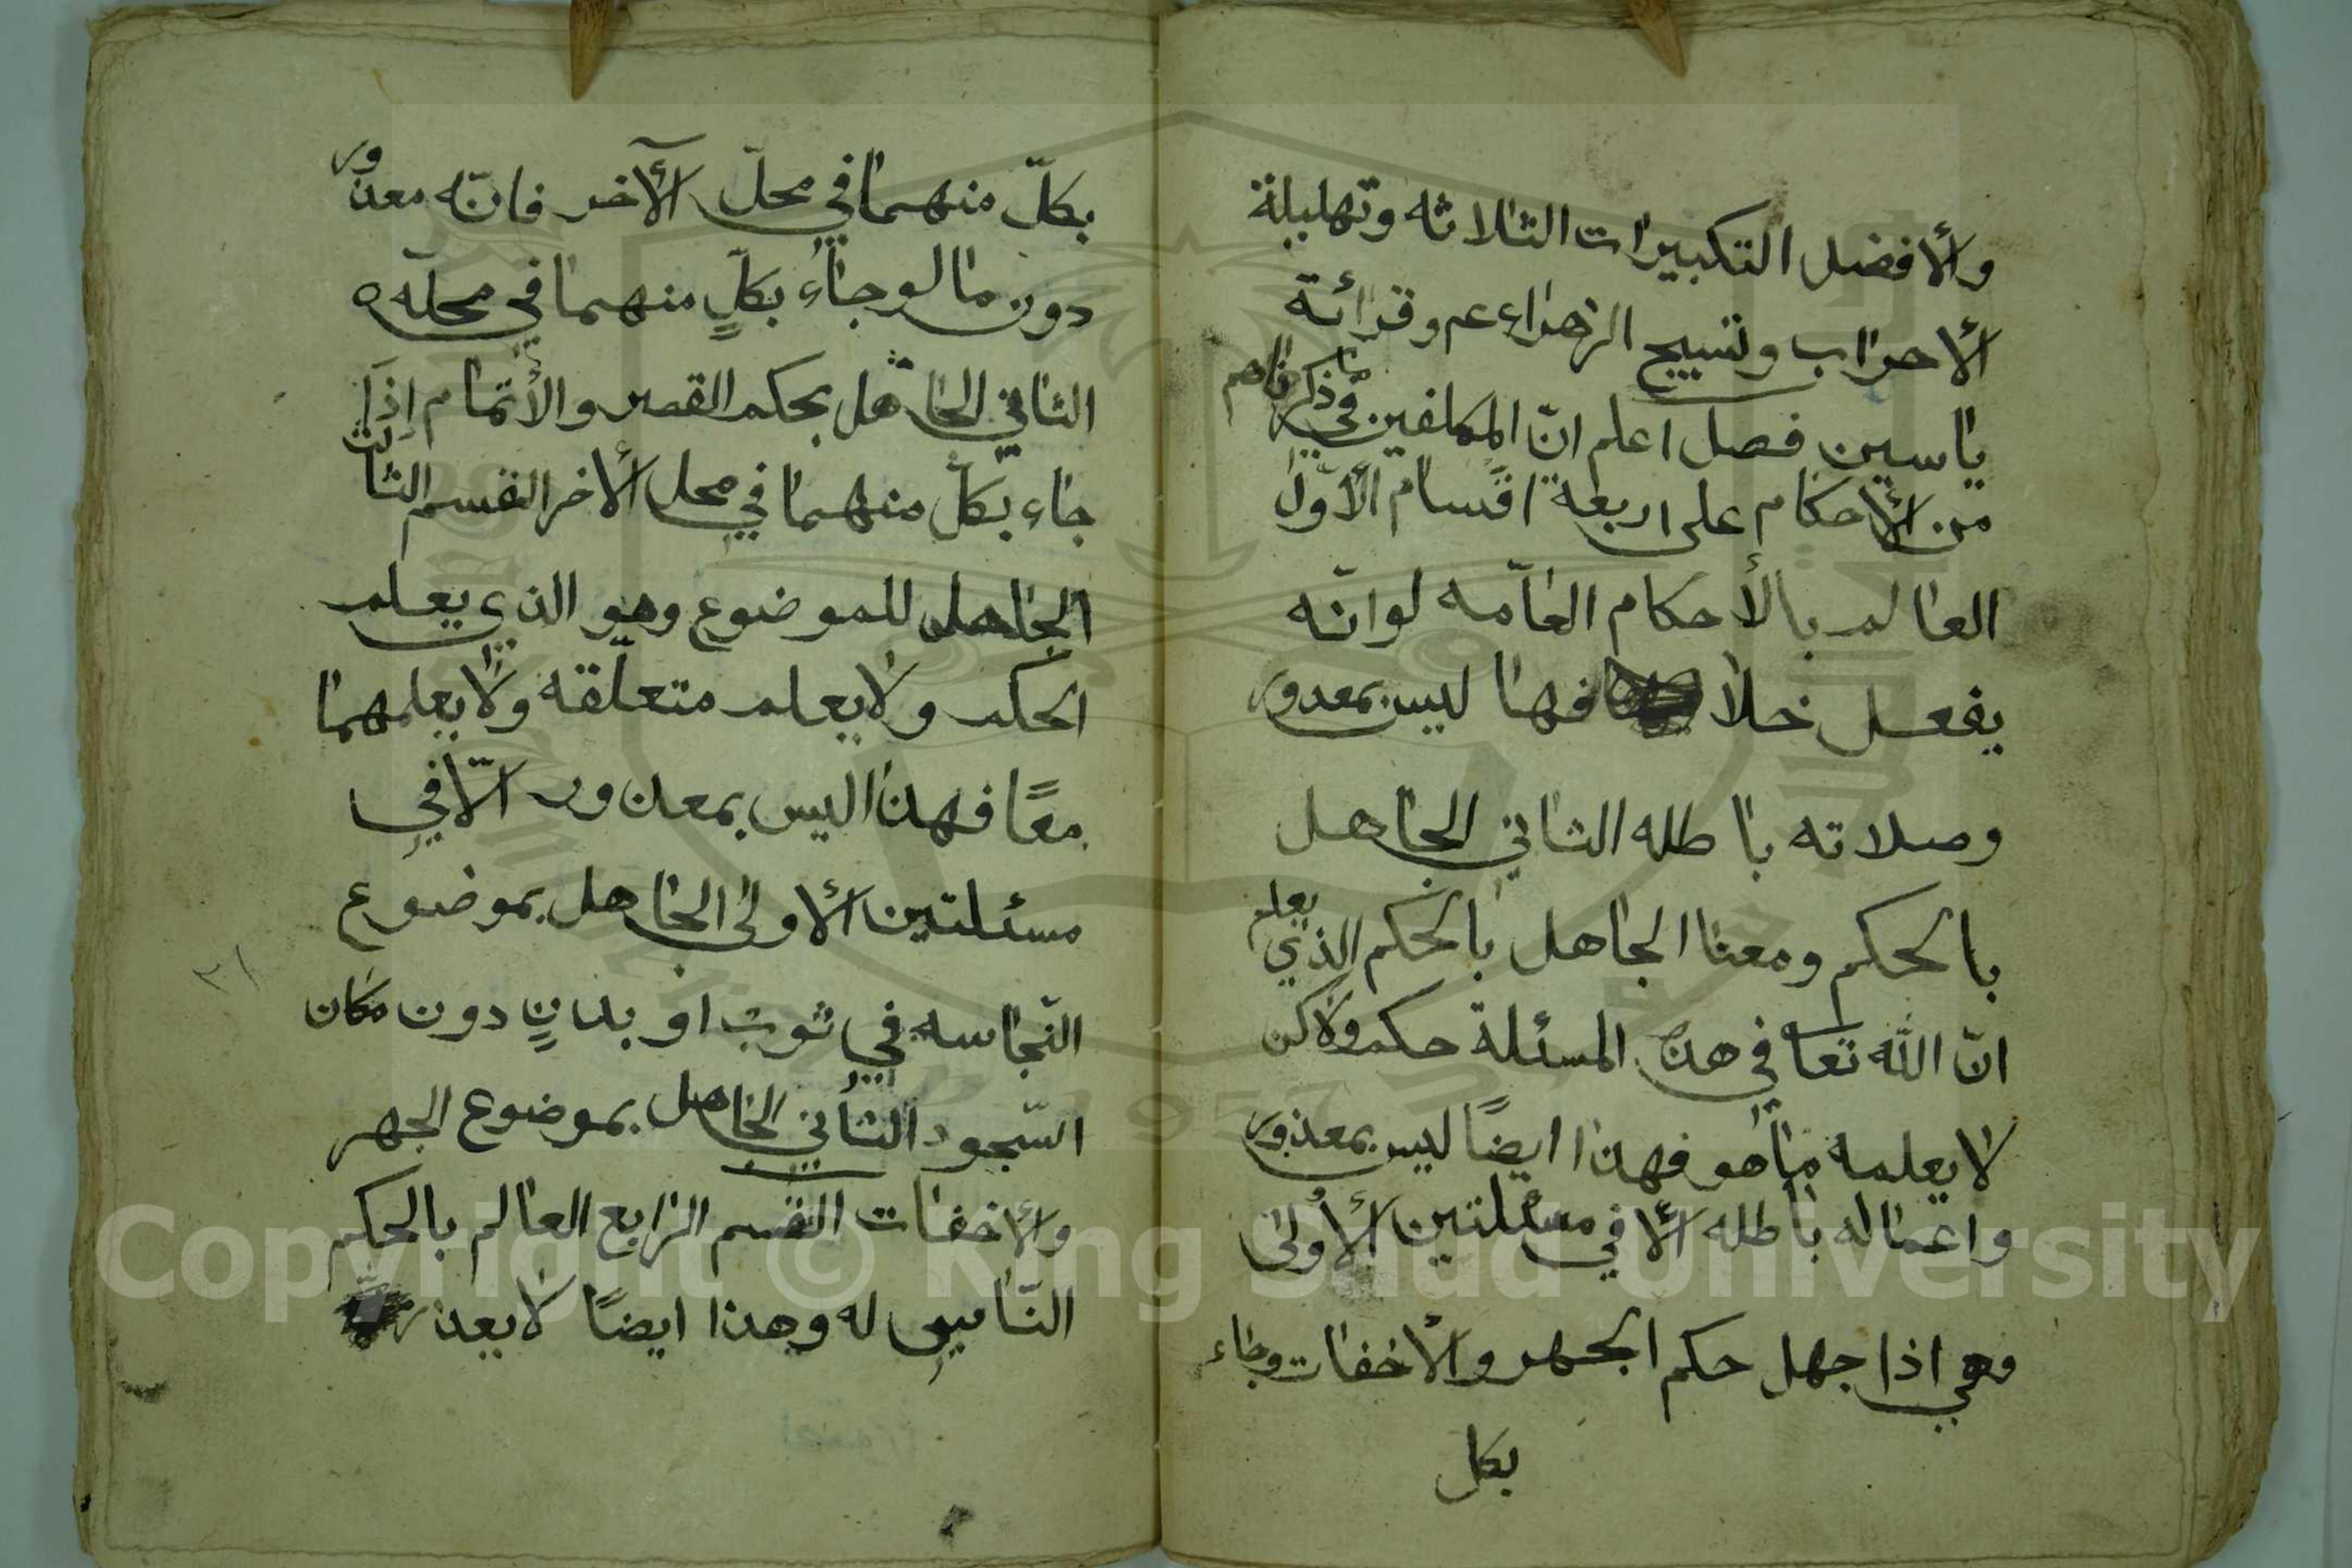 والأفضل التكبيرات الثلاثه وتهليلة
الأحزاب وتسبيح الزهراء عم وقرائة
ياسين فصل اعلم انّ المكلفين في ما ذكرناهم
من الأحكام على اربعة اقسام الأوّل
العالم بالأحكام العامّه لوانّه
يفعل خلافها ليس بمعدور
وصلاته باطله الثاني الجاهل
بالحكم ومعنا الجاهل بالحكم الذي يعلم
انّ الله تعا في هذه المسئلة حكم ولاكن
لا يعلمه ماهو فهذا ايضًا ليس بمعذور
واعماله باطله الأ في مسئلتين الأولى
وهي اذا جهل حكم الجهر والأخفات وجاء
بكل
بكلّ منهما في محلّ الآخر فانّه معذور
دون ما لو جاء بكلٍ منهما في محلّه ه
الثاني الجاهل بحكم القصر والأتمام إذا
جاء بكلّ منهما في محل الأخر القسم الثالث
الجاهل للموضوع وهو الذي يعلم
الحكم ولا يعلم متعلّقه ولا يعلمهما
معًا فهذا ليس بمعذور الّا في
مسئلتين الأولى الجاهل بموضوع
النّجاسه في ثوب او بدنٍ دون مكان
السّجود الثاني الجاهل بموضوع الجهر
والأخفات القسم الرابع العالم بالحكم
النّاسي له وهذا ايضًا لا يعذر
٢١
Copyright © King Saud University
1957